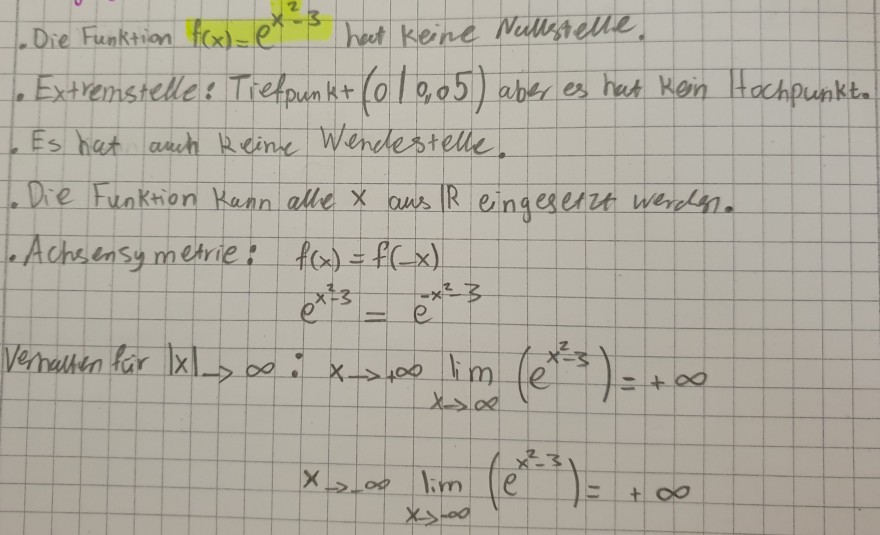 . Die Funktion f(x)=e^{x^2-3} hat keine Nullstelle.
. Extremstelle: Tiefpunkt (0|0,05) aber es hat kein Hochpunkt.
. Es hat auch keine Wendestelle.
. Die Funktion kann alle x aus ℝ eingesetzt werden.
. Achsensymetrie: f(x) = f(-x)
e^{x^2-3} = e^{-x^2-3}
Verhalten für |x| → ∞ : x → +∞ lim_{x→∞} (e^{x^2-3}) = +∞
x → -∞ lim_{x→-∞} (e^{x^2-3}) = +∞